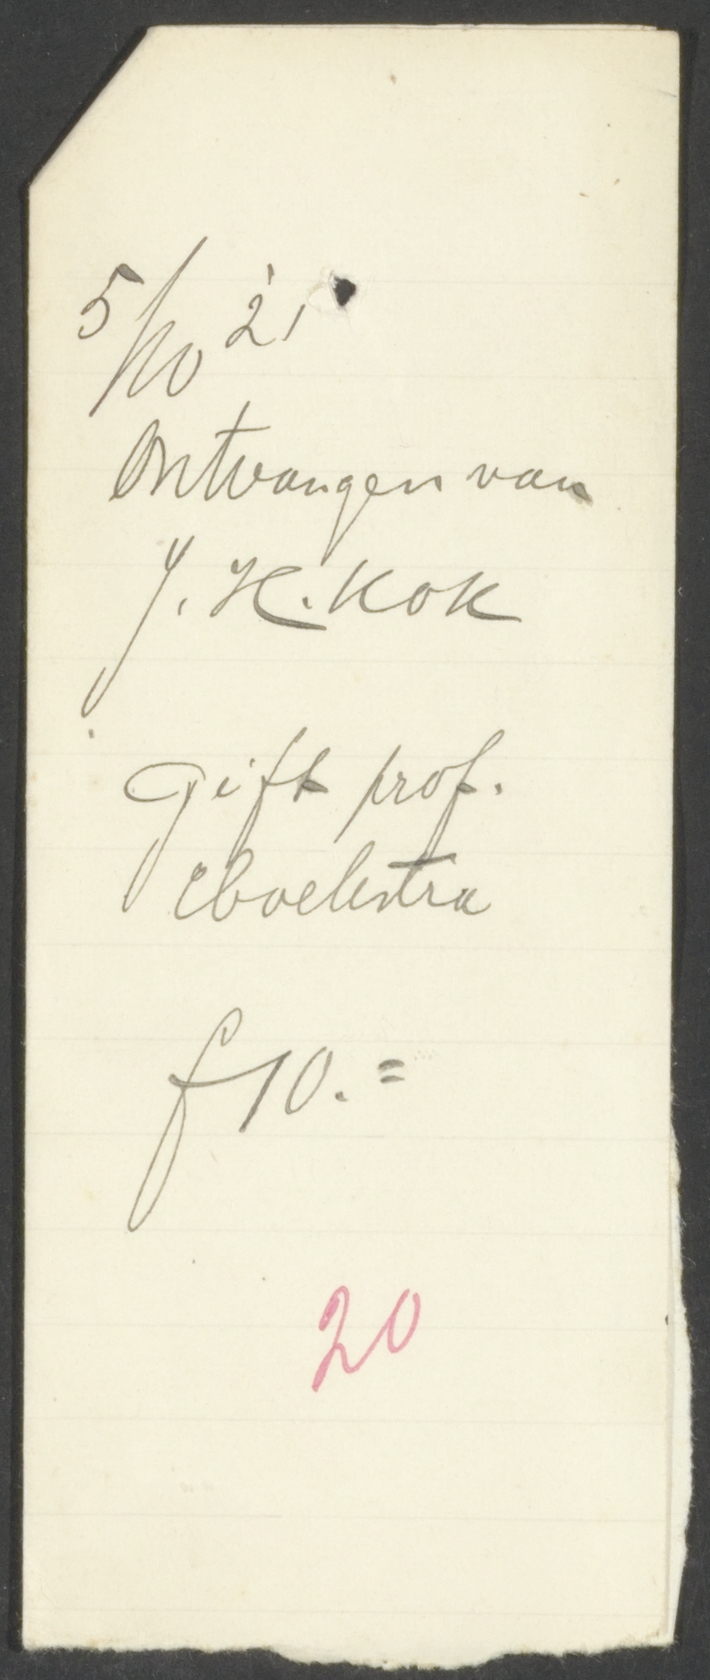 5/10 '21
Ontvangen van
J. H. Kok
Gift prof.
Hoekstra
f 10.=
20